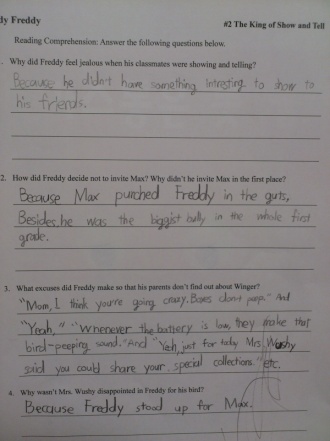 dy Freddy
#2 The King of Show and Tell
Reading Comprehension: Answer the following questions below.
. Why did Freddy feel jealous when his classmates were showing and telling?
Because he didn't have something intresting to show to
his friends.
2. How did Freddy decide not to invite Max? Why didn't he invite Max in the first place?
Because Max punched Freddy in the guts,
Besides, he was the biggist bully in the whole first
grade.
3. What excuses did Freddy make so that his parents don't find out about Winger?
"Mom, I think you're going crazy. Boxes don't peep." And
"Yeah," "Whenever the battery is low, they make that
bird-peeping sound." And "Yeah, just for today Mrs. Wushy
said you could share your special collections." etc.
4. Why wasn't Mrs. Wushy disappointed in Freddy for his bird?
Because Freddy stood up for Max.